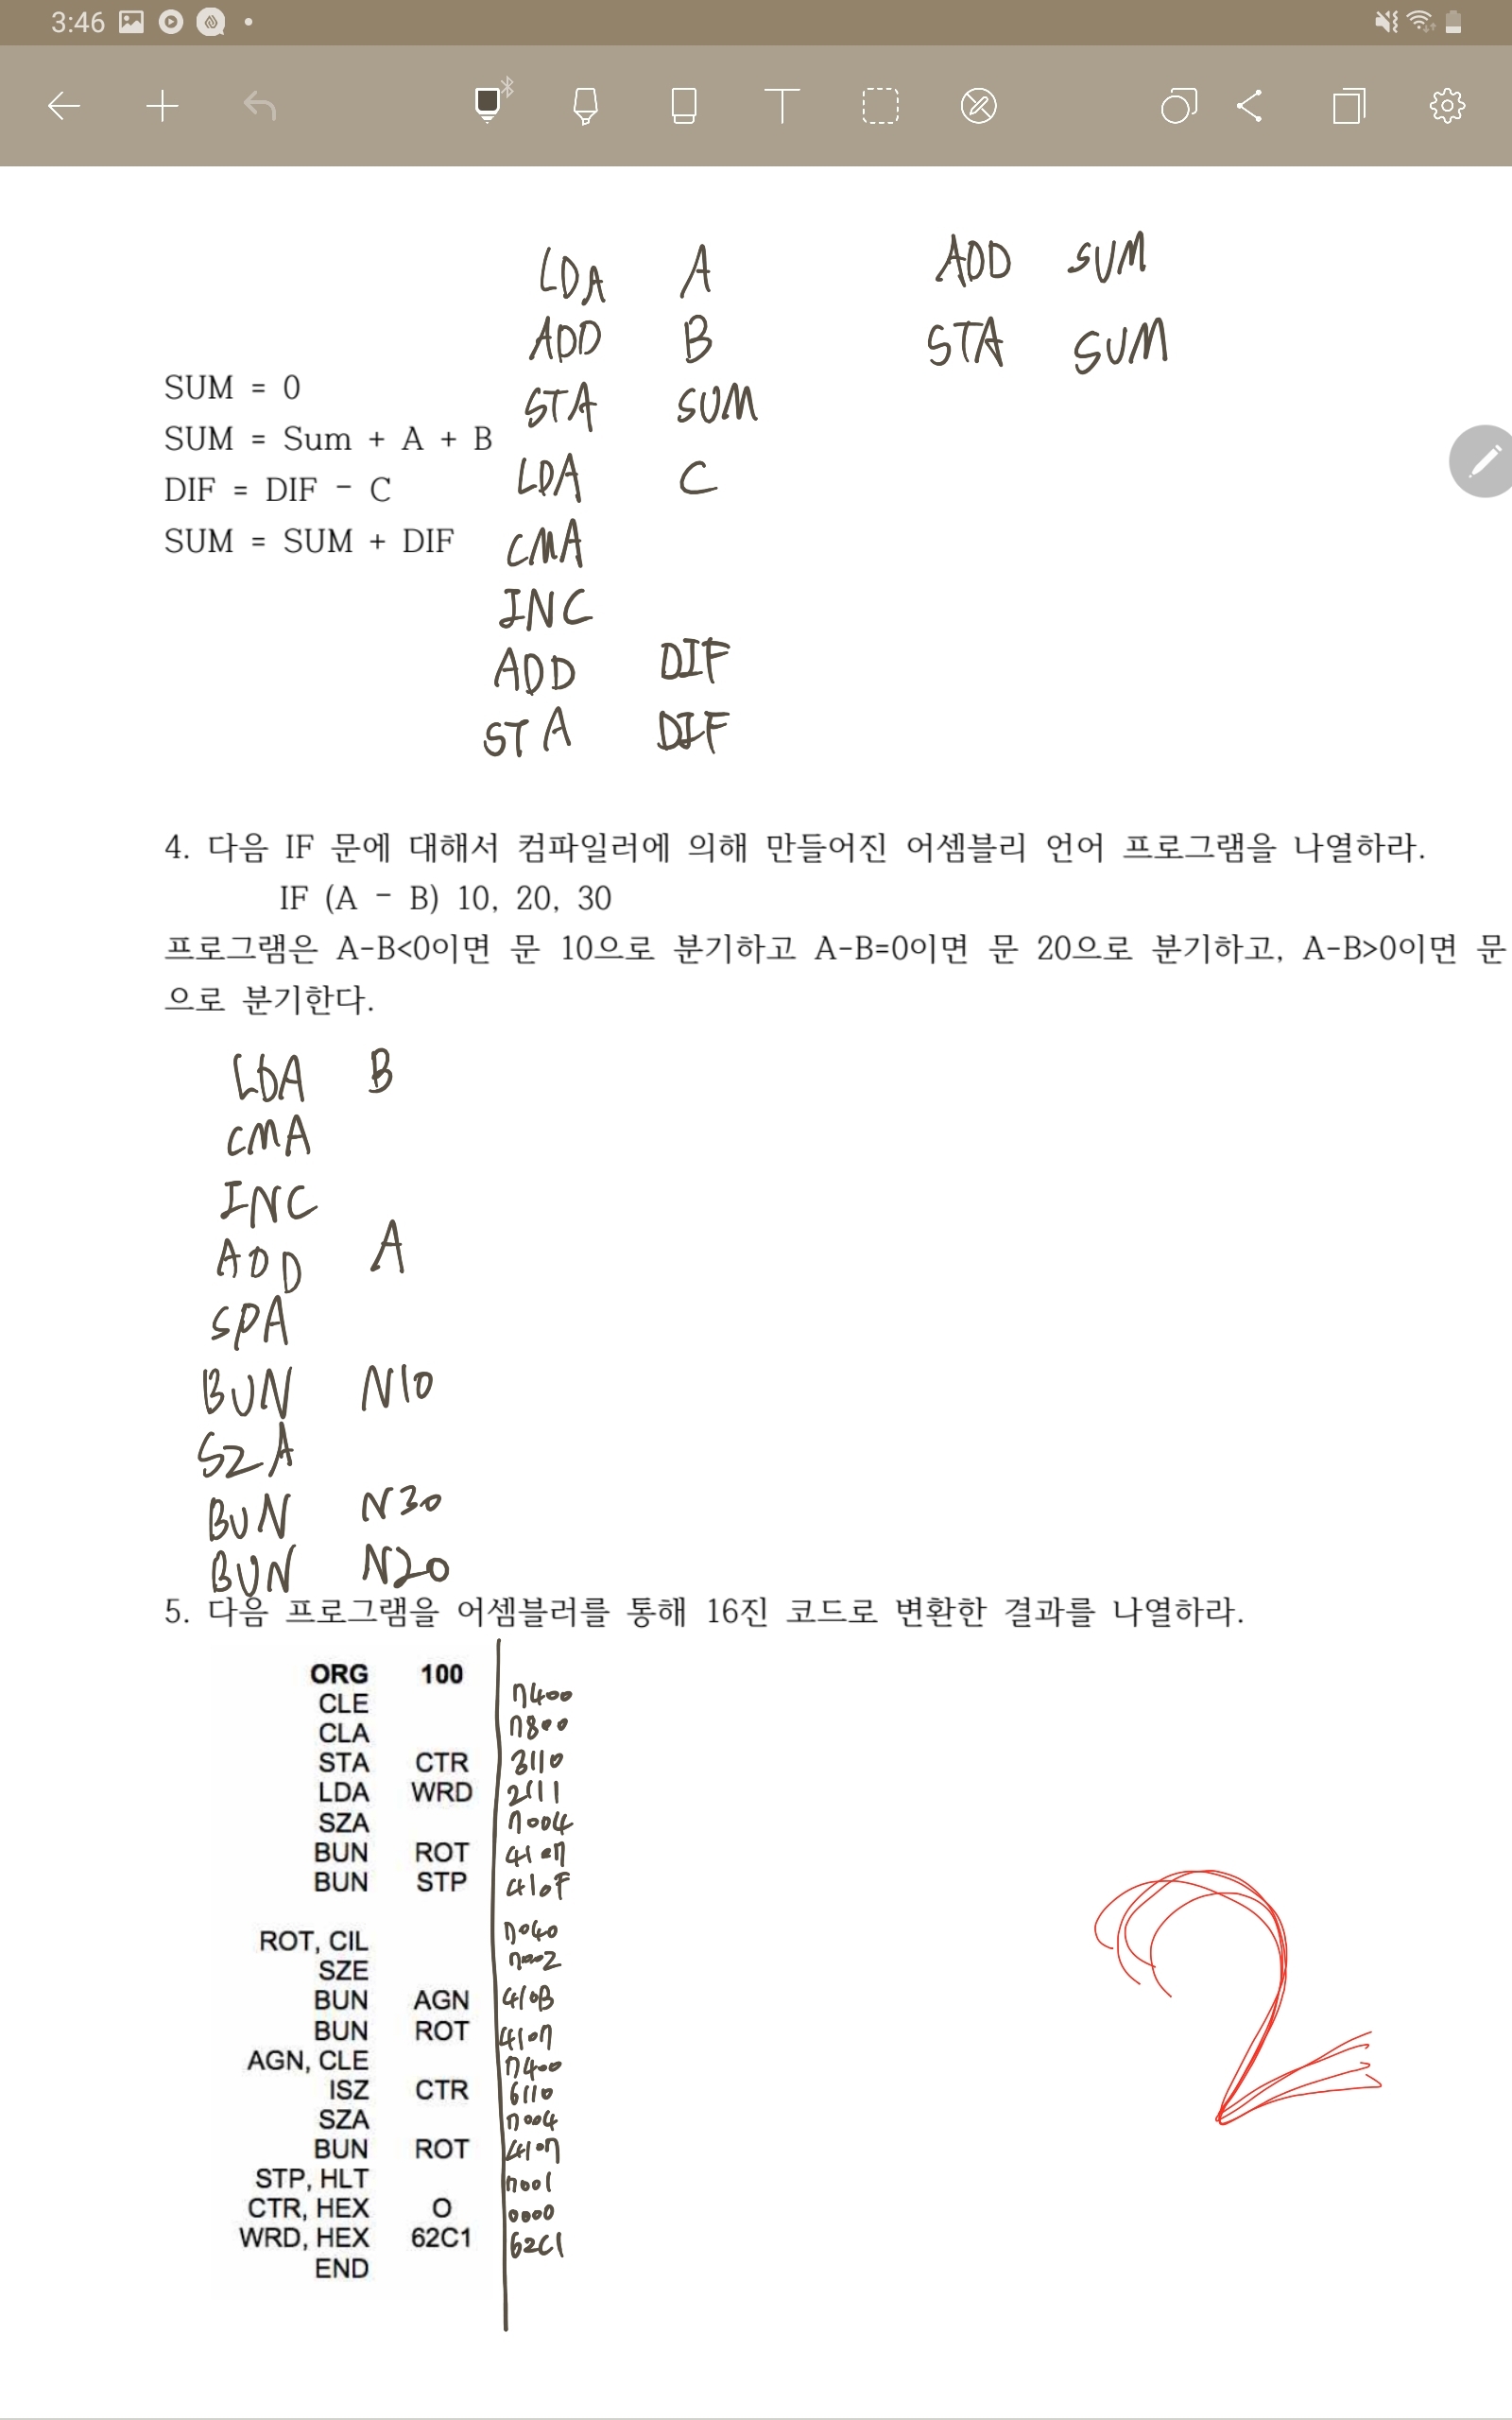 3:46
LDA A
ADD B
STA SUM
LDA C
CMA
INC
ADD DIF
STA DIF
ADD SUM
STA SUM
SUM = 0
SUM = Sum + A + B
DIF = DIF - C
SUM = SUM + DIF
4. 다음 IF 문에 대해서 컴파일러에 의해 만들어진 어셈블리 언어 프로그램을 나열하라.
IF (A - B) 10, 20, 30
프로그램은 A-B<0이면 문 10으로 분기하고 A-B=0이면 문 20으로 분기하고, A-B>0이면 문
으로 분기한다.
LDA B
CMA
INC
ADD A
SPA
BUN N10
SZA
BUN N30
BUN N20
5. 다음 프로그램을 어셈블러를 통해 16진 코드로 변환한 결과를 나열하라.
ORG 100
CLE 7400
CLA 7800
STA CTR 3110
LDA WRD 2111
SZA 7004
BUN ROT 4107
BUN STP 410F
ROT, CIL 7040
SZE 7002
BUN AGN 410B
BUN ROT 4107
AGN, CLE 7400
ISZ CTR 6110
SZA 7004
BUN ROT 4107
STP, HLT 7001
CTR, HEX O 0000
WRD, HEX 62C1 62C1
END
2